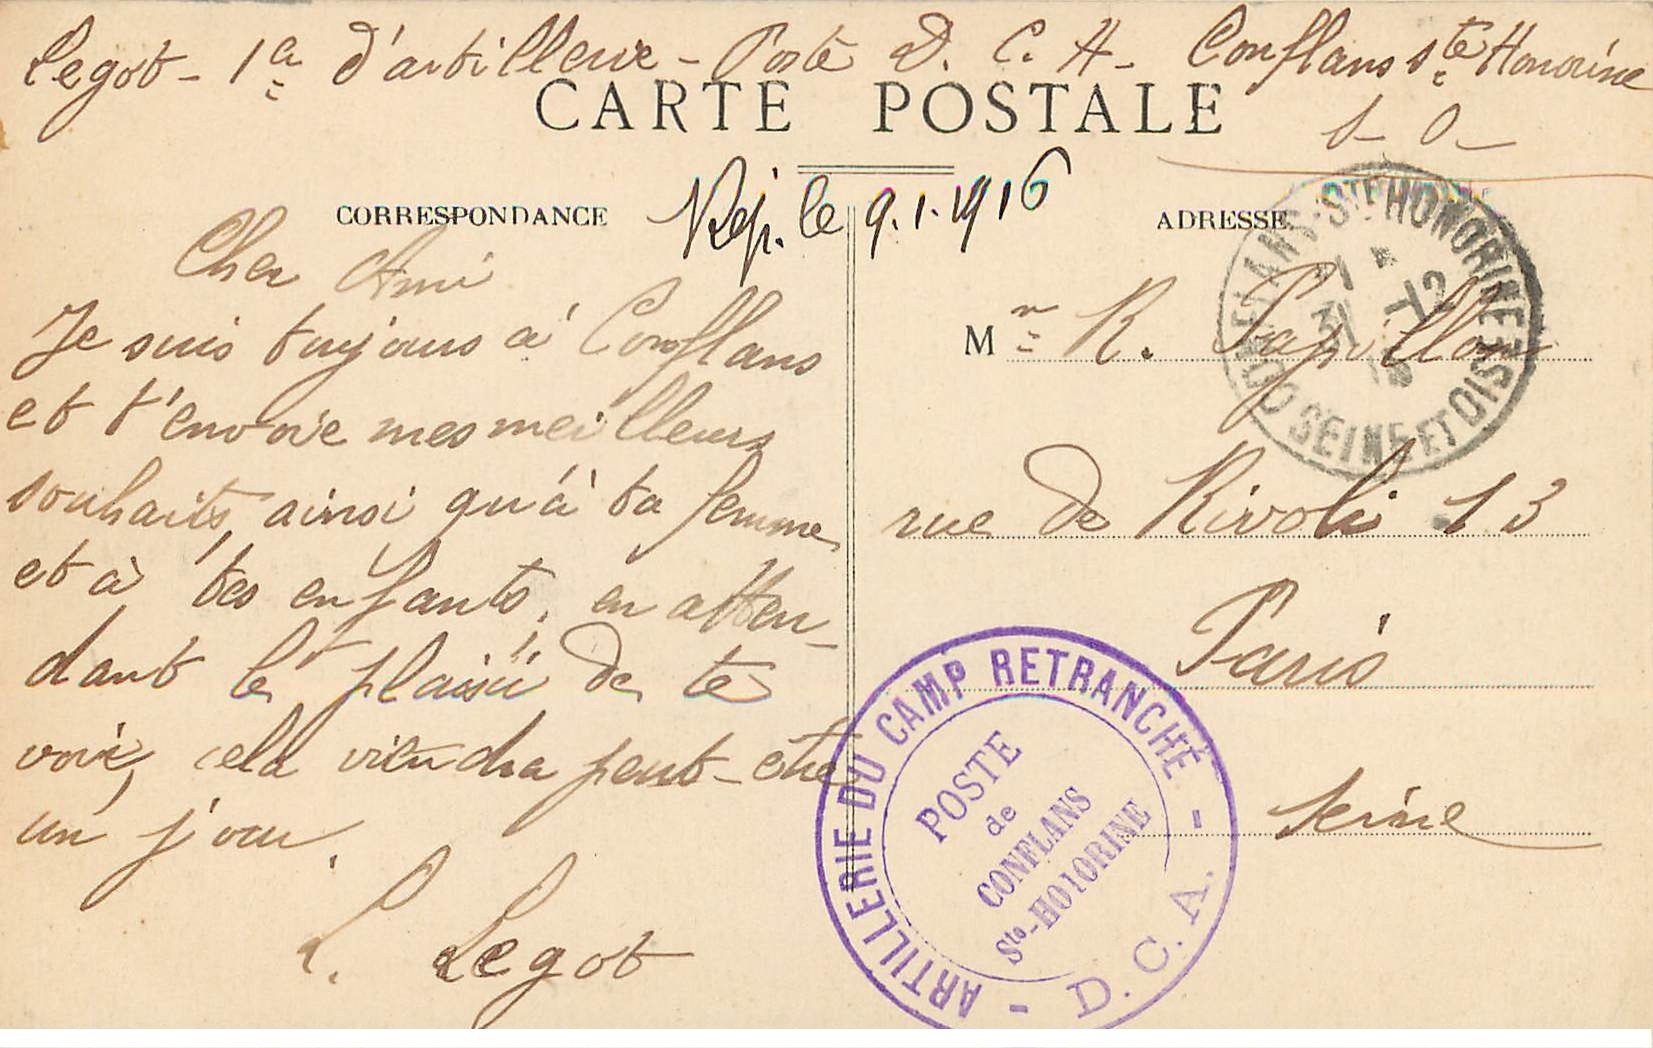 Legot - 1a d'artillerie - Poste D. C. A - Conflans Ste Honorine
S - O -
CARTE POSTALE
CORRESPONDANCE
Rép. le 9.1.1916
ADRESSE
Cher Ami
Je suis toujours à Conflans
et t'envoie mes meilleurs
souhaits, ainsi qu'à ta femme
et à tes enfants, en atten-
dant le plaisir de te
voir, cela viendra peut-être
un jour.
L. Legot
Mr R. Papillon
rue de Rivoli 13
Paris
Seine
CONFLANS-Ste HONORINE
31 -12
SEINE ET OISE
ARTILLERIE DU CAMP RETRANCHÉ -
D. C. A. -
POSTE
de
CONFLANS
Ste-HONORINE